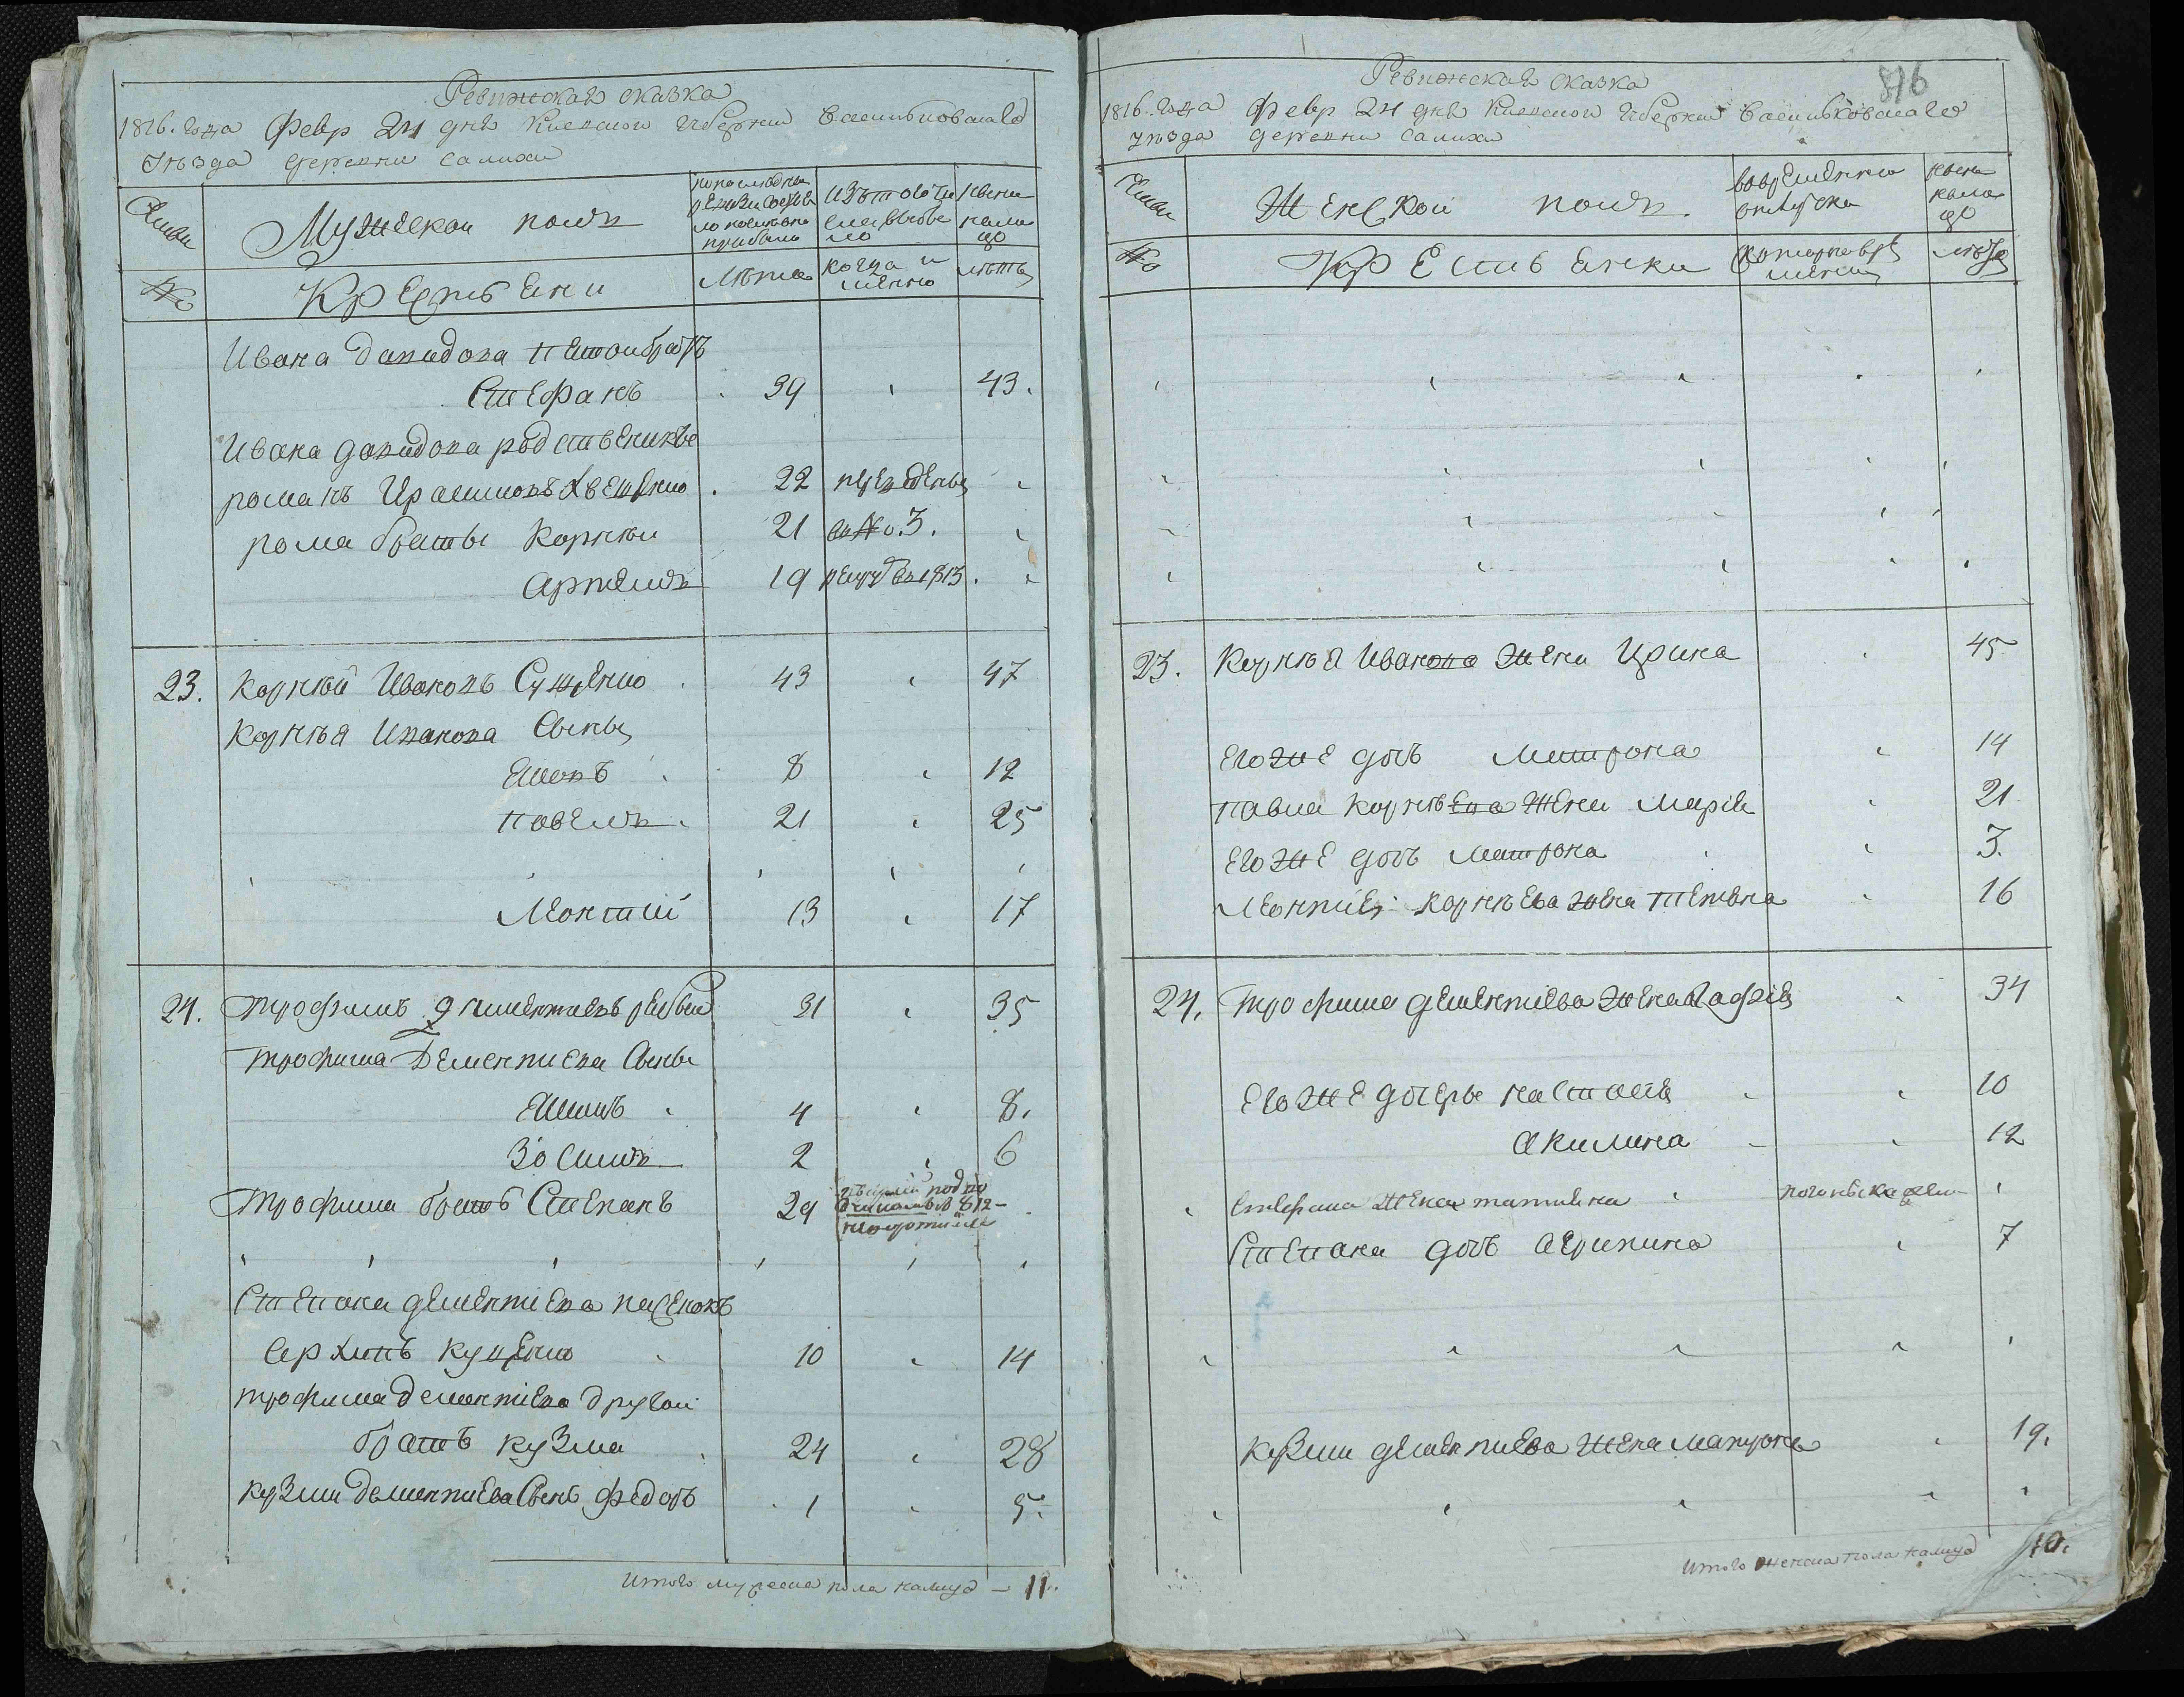 Ревижская сказка
1816. года Февр 24 дня Киевской Губернии Васильковскаго
уѣзда деревни Салихи
Семьи
Мужескои полъ
по последнеи ревизии состояло и после оной прибыло
Изъ того числа выбыло
Ныне на лицо
№
Крестьяни
Лѣта
когда и менно
лѣта
Ивана давидова пятои братъ
Стефанъ 39 43.
Ивана давидова родственикъ
романъ Ирасимовъ 22
рома браты Корнѣи 21 № 3.
Артемъ 19 1813.
23. Корнѣй Ивановъ 43 47
Корнѣя Иванова Сыны
Симонъ 8 12
павелъ 21 25
Леонтий 13 17
24. трофимъ дементиевъ 31 35
трофима Дементиева Сыны
Ефимъ 4 8.
Зосимъ 2 6
Трофима братъ Степанъ 29
Степана дементиева пасенокъ
Архипъ Куценко 10 14
трофима дементиева другои
братъ кузма 24 28
кузми дементиева Сынъ федоръ 1 5.
Итого мужеска пола налицо — 11.
816
Ревижская сказка
1816. года Февр 24 дня Киевской Губернии Васильковскаго
уѣзда деревни Салихи
Семьи
Женскои полъ.
вовременнои отлучки
ныне на лицо
№
Крестьянки
лѣта
23. Корнѣя Иванова жена Ирина 45
Его же дочь Матрона 14
павла корнѣева жена Мария 21
Его же дочь Матрона 3.
Леонтия корнѣева жена Тетяна 16
24. трофима дементиева жена Агафия 34
Его же дочеры настасия 10
Акилина 12
Степана жена татияна
Степана дочь Агрипина 7
кузми дементиева жена Матрона 19.
Итого женска пола налицо 10.